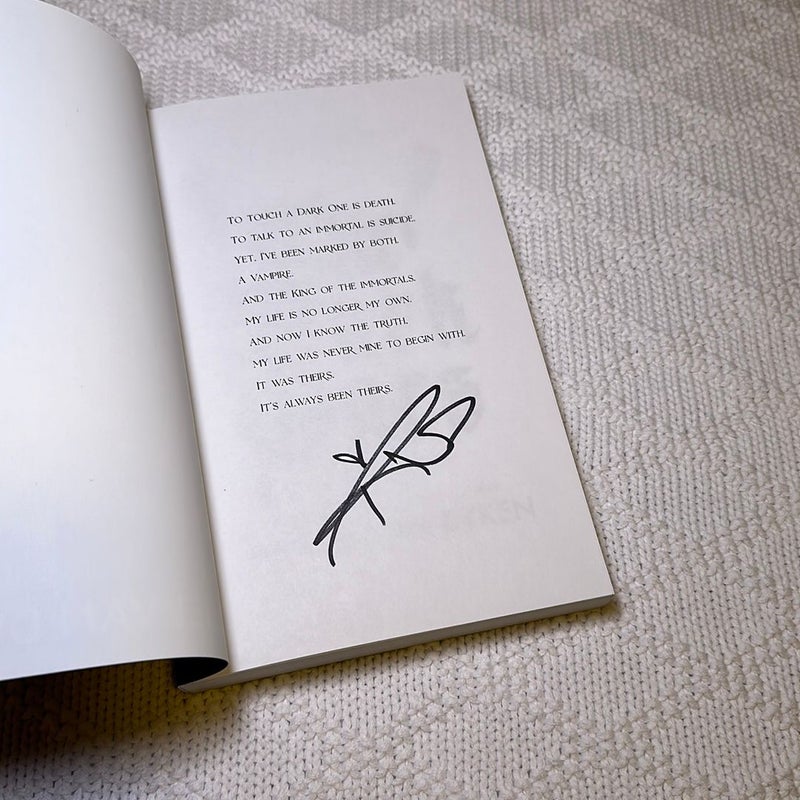 TO TOUCH A DARK ONE IS DEATH.
TO TALK TO AN IMMORTAL IS SUICIDE.
YET, I'VE BEEN MARKED BY BOTH.
A VAMPIRE.
AND THE KING OF THE IMMORTALS.
MY LIFE IS NO LONGER MY OWN.
AND NOW I KNOW THE TRUTH,
MY LIFE WAS NEVER MINE TO BEGIN WITH.
IT WAS THEIRS.
IT'S ALWAYS BEEN THEIRS.